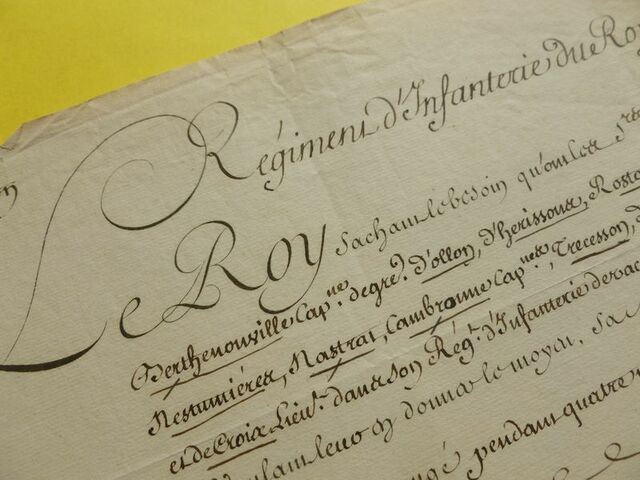 Régiment d'Infanterie du Roy
Le ROY sachant le besoin qu'ont les Srs
Berthenonville Capne. de gre. d'ollon, d'hérissour, Rosta
Nestumiéres, Nastrat, Cambronne Capnes, Trecesson, d
et de Croix Lieut. dans son Régt. d'Infanterie de vac
donner le moyen, Sa
pendant quatre